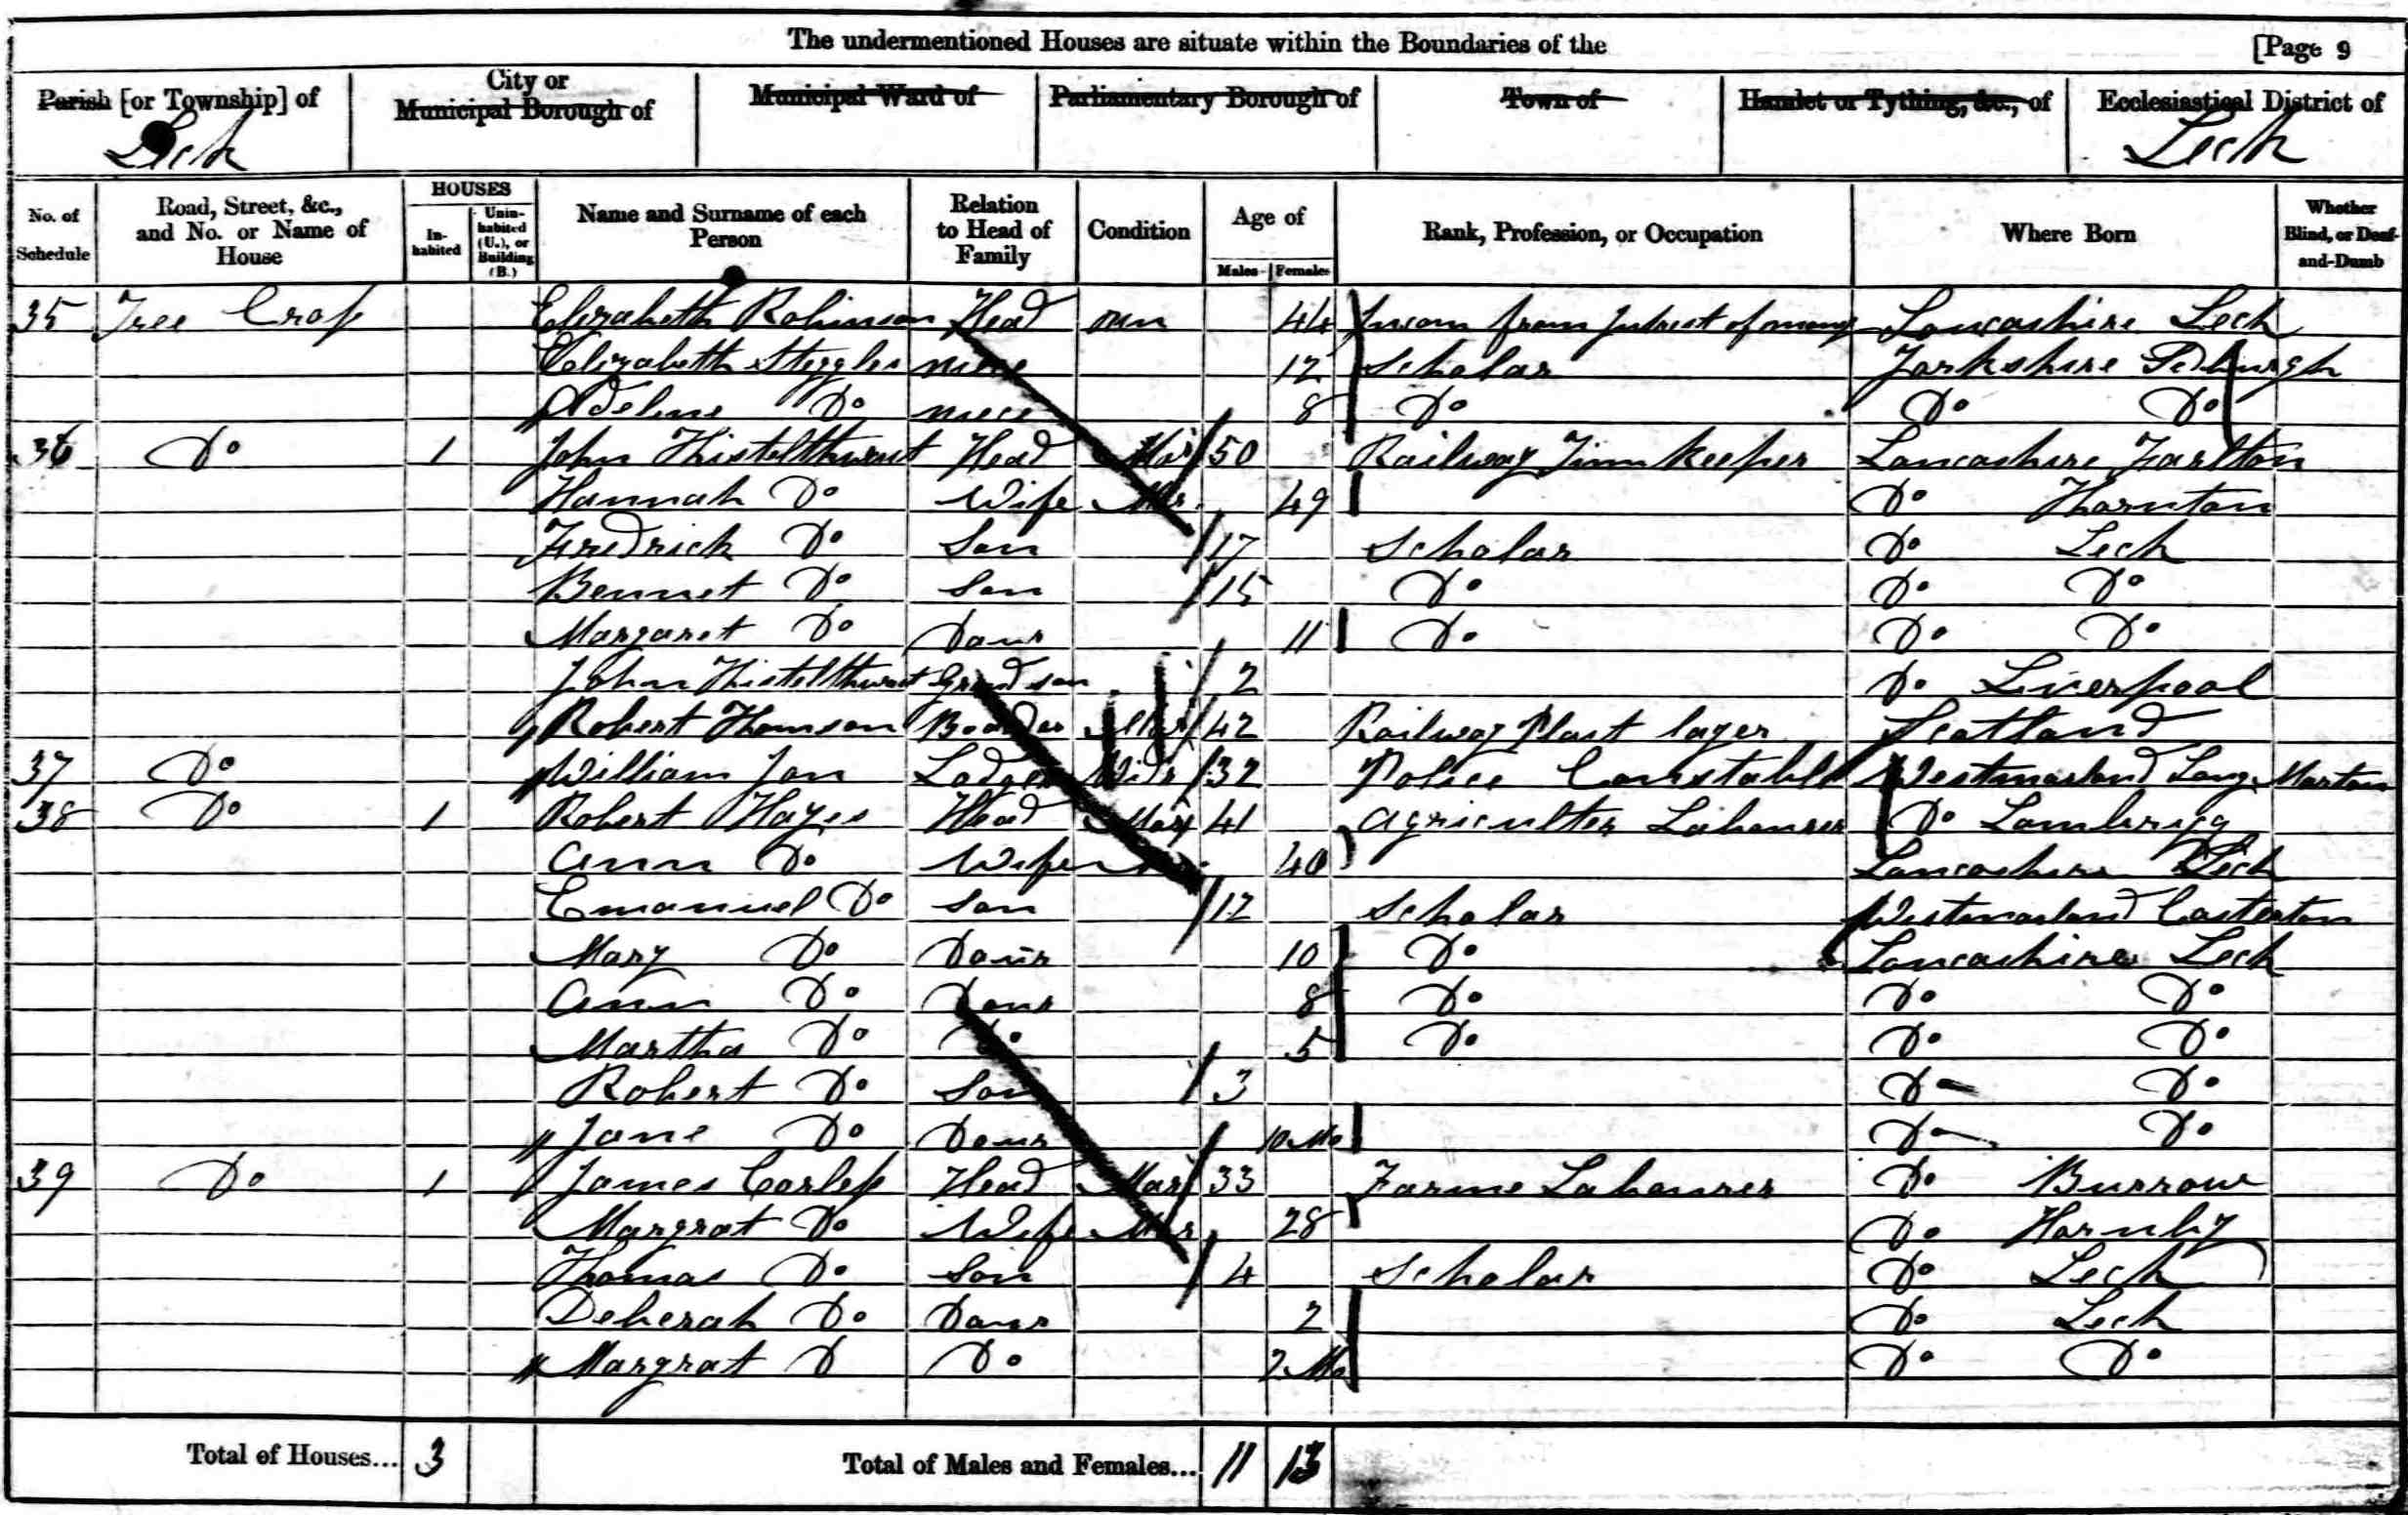 The undermentioned Houses are situate within the Boundaries of the [Page 9
Parish [or Township] of City or Municipal Borough of Municipal Ward of Parliamentary Borough of Town of Hamlet or Tything, &c., of Ecclesiastical District of
Leck Leck
No. of Schedule Road, Street, &c., and No. or Name of House HOUSES In-habited Unin-habited (U.), or Building (B.) Name and Surname of each Person Relation to Head of Family Condition Age of Males Females Rank, Profession, or Occupation Where Born Whether Blind, or Deaf-and-Dumb
35 Elizabeth Robinson Head un 44 Incom from Intrest of mony Lancashire Leck
Elizabeth Steggles niece 12 Scholar Yorkshire Sedburgh
Adeline Do niece 8 Do Do Do
36 Do 1 John Thistelthwart Head Mar 50 Railway Time Keeper Lancashire Farlton
Hannah Do Wife Mar 49 Do Thornton
Fredrick Do Son 17 Scholar Do Leck
Bennet Do Son 15 Do Do Do
Margaret Do Daur 11 Do Do Do
John Thistelthwart Grandson 2 Do Liverpool
Robert Thomson Boarder Mar 42 Railway Plait layer Scotland
37 Do William Jon Lodger Widr 32 Police Constable Westmorland Long Marton
38 Do 1 Robert Hayes Head Mar 41 Agriculter Labourer Do Lambrigg
Ann Do Wife 40 Lancashire Leck
Emanuel Do Son 12 Scholar Westmorland Casterton
Mary Do Daur 10 Do Lancashire Leck
Ann Do Daur 8 Do Do Do
Martha Do Do 5 Do Do Do
Robert Do Son 3 Do Do
Jane Do Daur 10 Mo Do Do
39 Do 1 James Corless Head Mar 33 Farme Labourer Do Burrow
Margrat Do Wife Mar 28 Do Hornby
Thomas Do Son 4 Scholar Do Leck
Deberah Do Daur 2 Do Leck
Margrat D Do 2 Mo Do Do
Total of Houses... 3 Total of Males and Females... 11 13